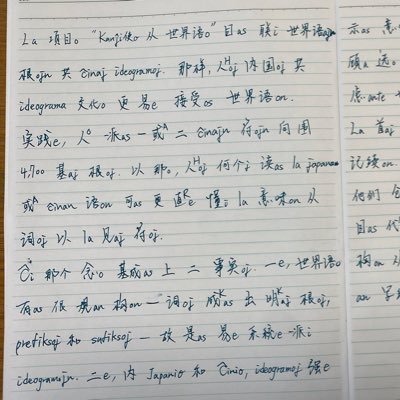 La 项目o "Kanji侠o 从 世界语o" 目as 联i 世界语ajn
根ojn 共 ĉinaj ideogramoj. 那样, 人oj 内 国oj 共
ideograma 文化o 更 易e 接受os 世界语on.
实践e, 人o 派as 一 或 二 ĉinajn 符ojn 向 围
4,700 基aj 根oj. 以 那o, 人oj 何个j 读as la japanan
或 ĉinan 语on 可as 更 直e 懂i la 意味on 从
词oj 以 la 见aj 符oj.
Ĉi 那个 念o 基成as 上 二 事实oj. 一e, 世界语o
有as 很 规an 构on — 词oj 成as 出 明aj 根oj,
prefiksoj 和 sufiksoj — 故 是as 易e 系统e 派i
ideogramojn. 二e, 内 Japanio 和 Ĉinio, ideogramoj 强e
示as 意
顾a 远o.
虑ante
La 首aj
记续on.
他们
目as 代
构on 从
an 字